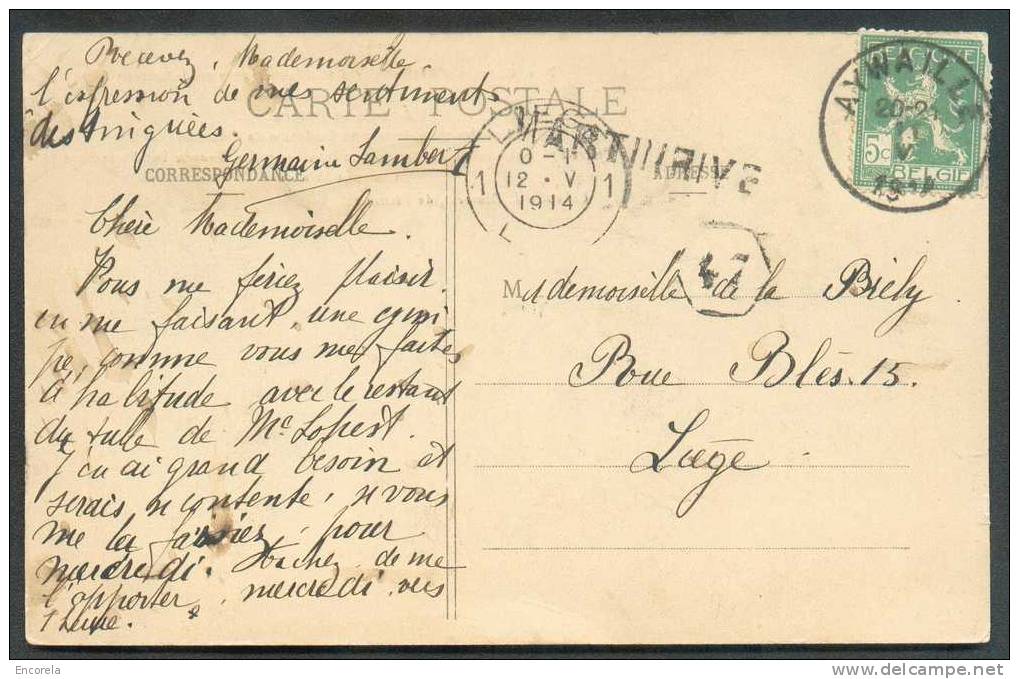 Recevez, Mademoiselle,
l'expression de mes sentiments
distinguées.
Germaine Lambert
CARTE POSTALE
CORRESPONDANCE
ADRESSE
Chère Mademoiselle.
Vous me feriez plaisir
en me faisant, une
pe, comme vous me faites
d'habitude avec le restant
du tulle de Me Lohest.
J'en ai grand besoin et
serais si contente, si vous
me la faisiez pour
mercredi. Tachez de me
l'apporter, mercredi vers
1 heure.
LIEGE
0-1
12 · V
1914
1 1
L
ARRIVE
47
AYWAILLE
20-21
V
BELGIQUE
5c
BELGIË
M
Mademoiselle de la Biely
Rue Blés. 15.
Liège
Encorela
www.delcampe.net